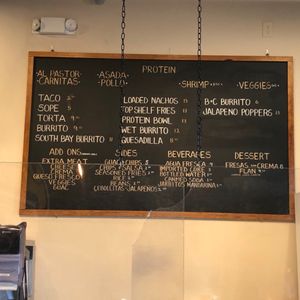 PROTEIN
AL PASTOR ASADA SHRIMP VEGGIES
CARNITAS POLLO
TACO
SOPE
TORTA 9
BURRITO 9
SOUTH BAY BURRITO 11
LOADED NACHOS 11
TOP SHELF FRIES 11
PROTEIN BOWL 11
WET BURRITO 11
QUESADILLA
B+C BURRITO
JALAPENO POPPERS
ADD ONS
EXTRA MEAT
CHEESE
CREMA
QUESO FRESCO
VEGGIES
GUAC
SIDES
GUAC & CHIPS
CHIPS & SALSA
SEASONED FRIES
RICE
BEANS
CEBOLLITAS JALAPENOS
BEVERAGES
AGUA FRESCA
IMPORTED COKE
BOTTLED WATER
CANNED SODA
JARRITOS MANDARINA
DESSERT
FRESAS CON CREMA
FLAN